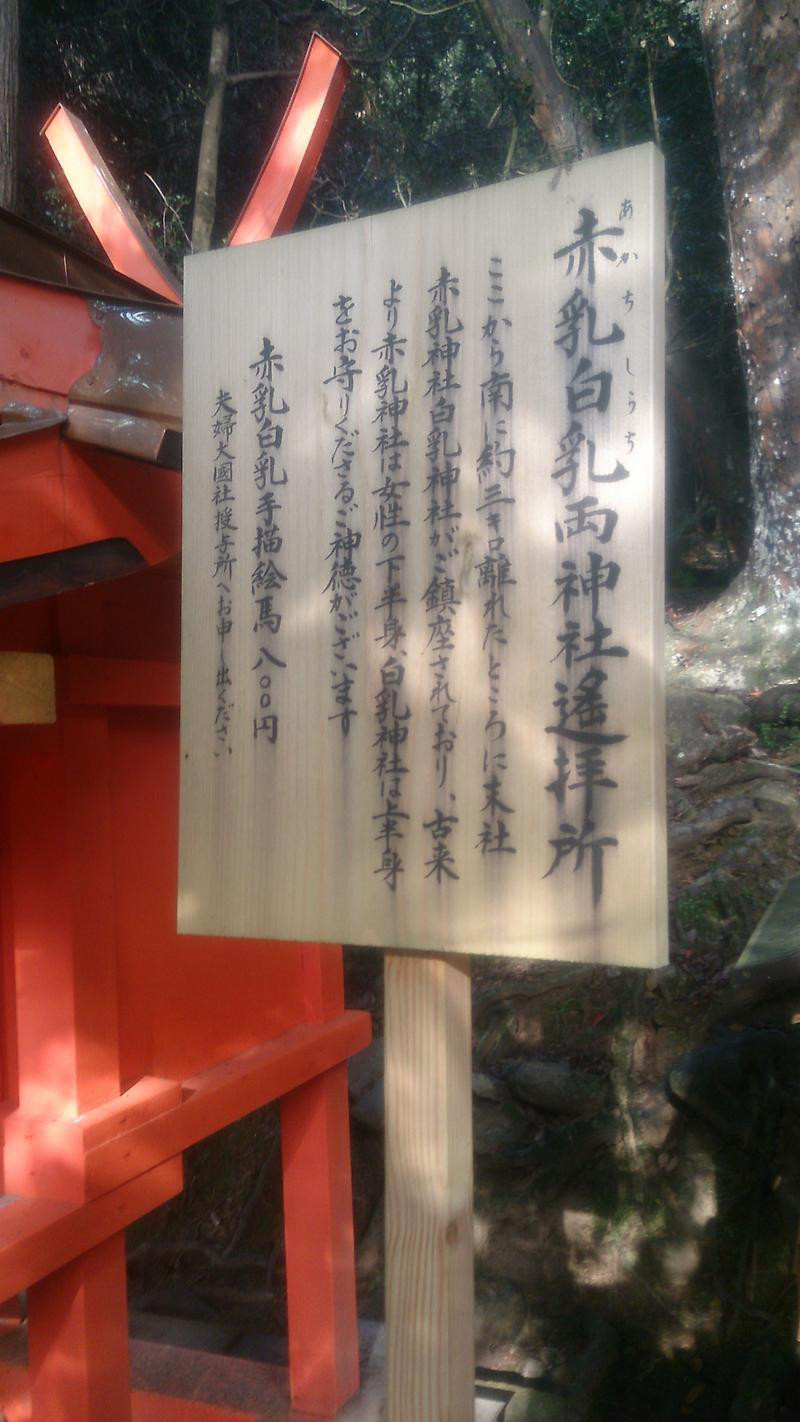 赤乳白乳両神社遙拝所
あかちしろち
ここから南に約三キロ離れたところに末社
赤乳神社白乳神社がご鎮座されており、古来
より赤乳神社は女性の下半身、白乳神社は上半身
をお守りくださるご神徳がございます
赤乳白乳手描絵馬 八〇〇円
夫婦大國社授与所へお申し出ください